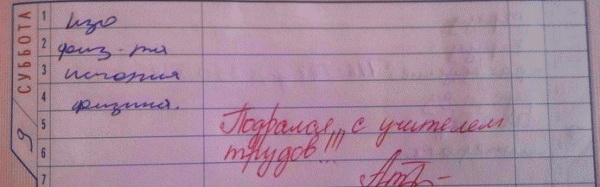 СУББОТА 9
1 изо
2 физ-ра
3 история
4 физика.
5 Подрался с учителем
6 трудов!!!
7